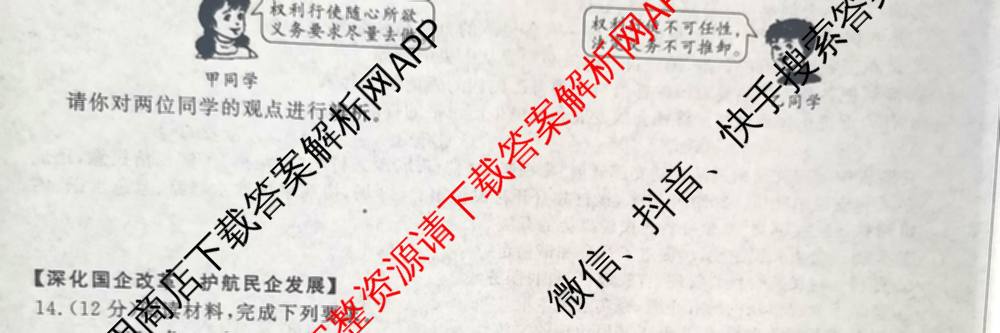 权利行使随心所欲
义务要求尽量去做
权利 不可任性,
义务不可推卸。
甲同学
同学
请你对两位同学的观点进行
【深化国企改革 护航民企发展】
14.(12分) 读材料,完成下列要
用商店下载答案解析网APP
整资源请下载答案解析网APP
微信、抖音、快手搜索答